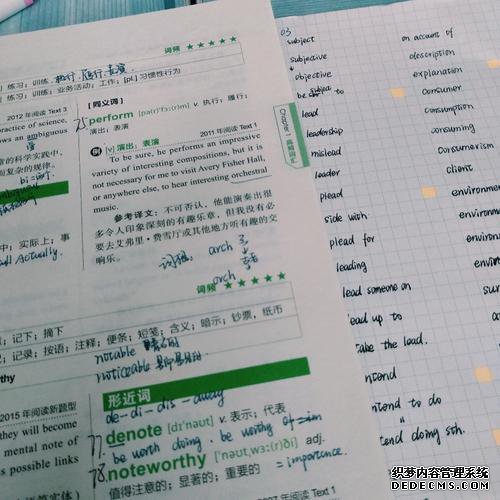 词频 ★★★★★
练习；训练 执行，履行，表演
练习；训练；业务活动；工作；[pl.] 习惯性行为
2012 年阅读 Text 3
practice of science,
ows an ambiguous
常的科学实践中，
而复杂的规律。
中；实际上；事
Actually.
[同义词]
perform [pə(r)ˈfɔː(r)m] v. 执行；履行；
演出；表演
2011 年阅读 Text 1
例 [v] 演出；表演
To be sure, he performs an impressive
variety of interesting compositions, but it is
not necessary for me to visit Avery Fisher Hall,
or anywhere else, to hear interesting orchestral
music.
参考译文：不可否认，他能演奏出很
多令人印象深刻的有趣乐章，但我没必
要去艾弗里·费雪厅或其他地方听有趣的交
响乐。
arch
arch
词频 ★★★★★
Chapter 1
；记下；摘下
；记录；按语；注释；便条；短笺；含义；暗示；钞票，纸币
notable
noticeable
thy
2015 年阅读新题型
they will become
mental note of
s possible links
形近词
de-di-dis-away
77 denote [dɪˈnəʊt] v. 表示；代表
be worth doing. be worthy of
78 noteworthy [ˈnəʊtˌwɜː(r)ði] adj.
值得注意的；显著的；重要的 = importance.
03
subject
subjective
objective
be subject to
lead
leadership
mislead
leader
plead
side with
plead for
leading
lead someone on
lead up to
take the lead.
intend
intend to do
intend doing sth.
on account of
description
explanation
consumer
consumption
consuming
consumerism
client
environm
environme
织梦内容管理系统
DEDECMS.COM